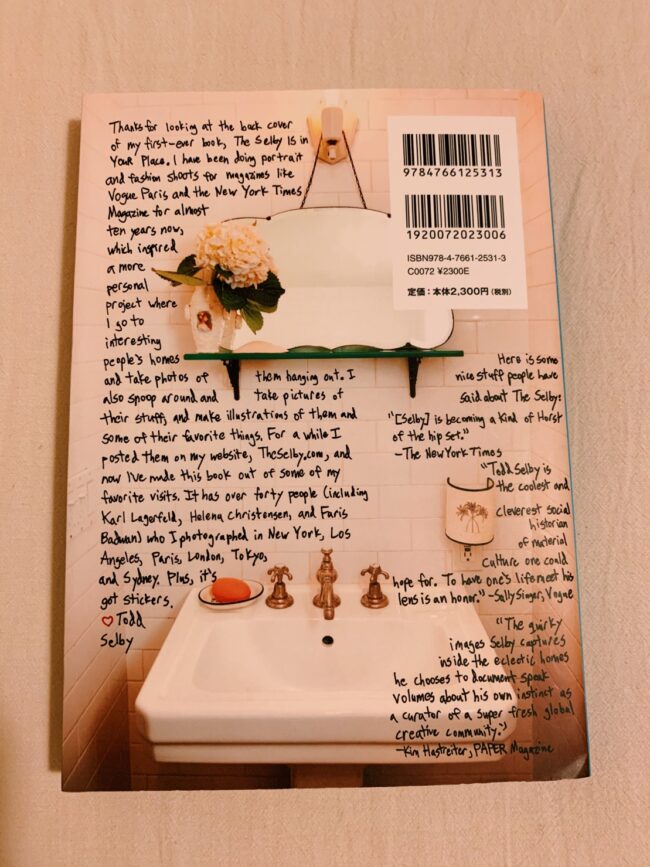 Thanks for looking at the back cover
of my first-ever book, The Selby Is in
Your Place. I have been doing portrait
and fashion shoots for magazines like
Vogue Paris and the New York Times
Magazine for almost
ten years now,
which inspired
a more
personal
project where
I go to
interesting
people's homes
and take photos of them hanging out. I
also snoop around and take pictures of
their stuff, and make illustrations of them and
some of their favorite things. For a while I
posted them on my website, TheSelby.com, and
now I've made this book out of some of my
favorite visits. It has over forty people (including
Karl Lagerfeld, Helena Christensen, and Faris
Badwan) who I photographed in New York, Los
Angeles, Paris, London, Tokyo,
and Sydney. Plus, it's
got stickers.
♡ Todd
Selby
9784766125313
1920072023006
ISBN978-4-7661-2531-3
C0072 ¥2300E
定価：本体2,300円（税別）
Here is some
nice stuff people have
said about The Selby:
"[Selby] is becoming a kind of Horst
of the hip set."
—The New York Times
"Todd Selby is
the coolest and
cleverest social
historian
of material
culture one could
hope for. To have one's life meet his
lens is an honor." -Sally Singer, Vogue
"The quirky
images Selby captures
inside the eclectic homes
he chooses to document speak
volumes about his own instinct as
a curator of a super fresh global
creative community."
—Kim Hastreiter, PAPER Magazine